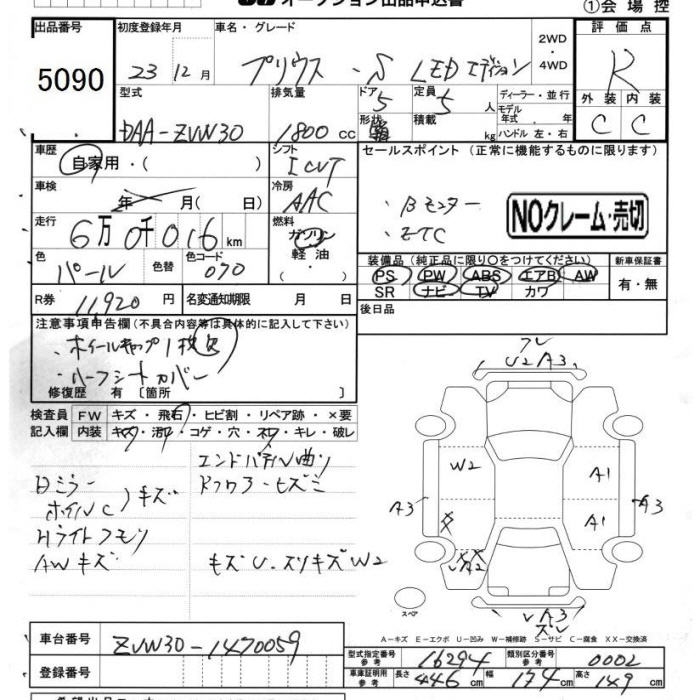 オークション出品申込書
①会場控
出品番号 初度登録年月 車名・グレード 評価点
5090 23 12月 プリウス・S LEDエディション 2WD・4WD R
型式 排気量 ドア 5 定員 5人 ディーラー・並行 外装 内装
DAA-ZVW30 1800cc 形状 積載 kg モデル年式 年 ハンドル 左・右 C C
車歴 自家用・( ) シフト ICVT セールスポイント (正常に機能するものに限る)
車検 年 月(日) 冷房 AAC ・Bモニター
走行 6万0千016km 燃料 ガソリン・軽油・( ) ・ETC NOクレーム・売切
色 パール 色替 色コード 070 装備品(純正品に限り○をつけてください) 新車保証書
PS PW ABS エアB AW 有・無
SR ナビ TV カワ
R券 11,920円 名変通知期限 月 日 後日品
注意事項申告欄(不具合内容等は具体的に記入して下さい)
・ホイールキャップ1枚欠
・ハーフシートカバー
修復歴 有 〔箇所 〕
検査員記入欄 FW キズ・飛石・ヒビ割・リペア跡・×要
内装 キズ・汚レ・コゲ・穴・スレ・キレ・破レ
エンドパネル曲り
Dミラー
ホイルC キズ
Hライトクモリ
AWキズ キズU・スリキズW2
フレ
U2A3
W2 A1
A3 A3
A1
スペア
A-キズ E-エクボ U-凹み W-補修跡 S-サビ C-腐食 XX-交換済
車台番号 ZVW30-1470059
型式指定番号 参考 16294 類別区分番号 参考 0002
登録番号 車庫証明用 参考 長さ 446cm 幅 174cm 高さ 149cm